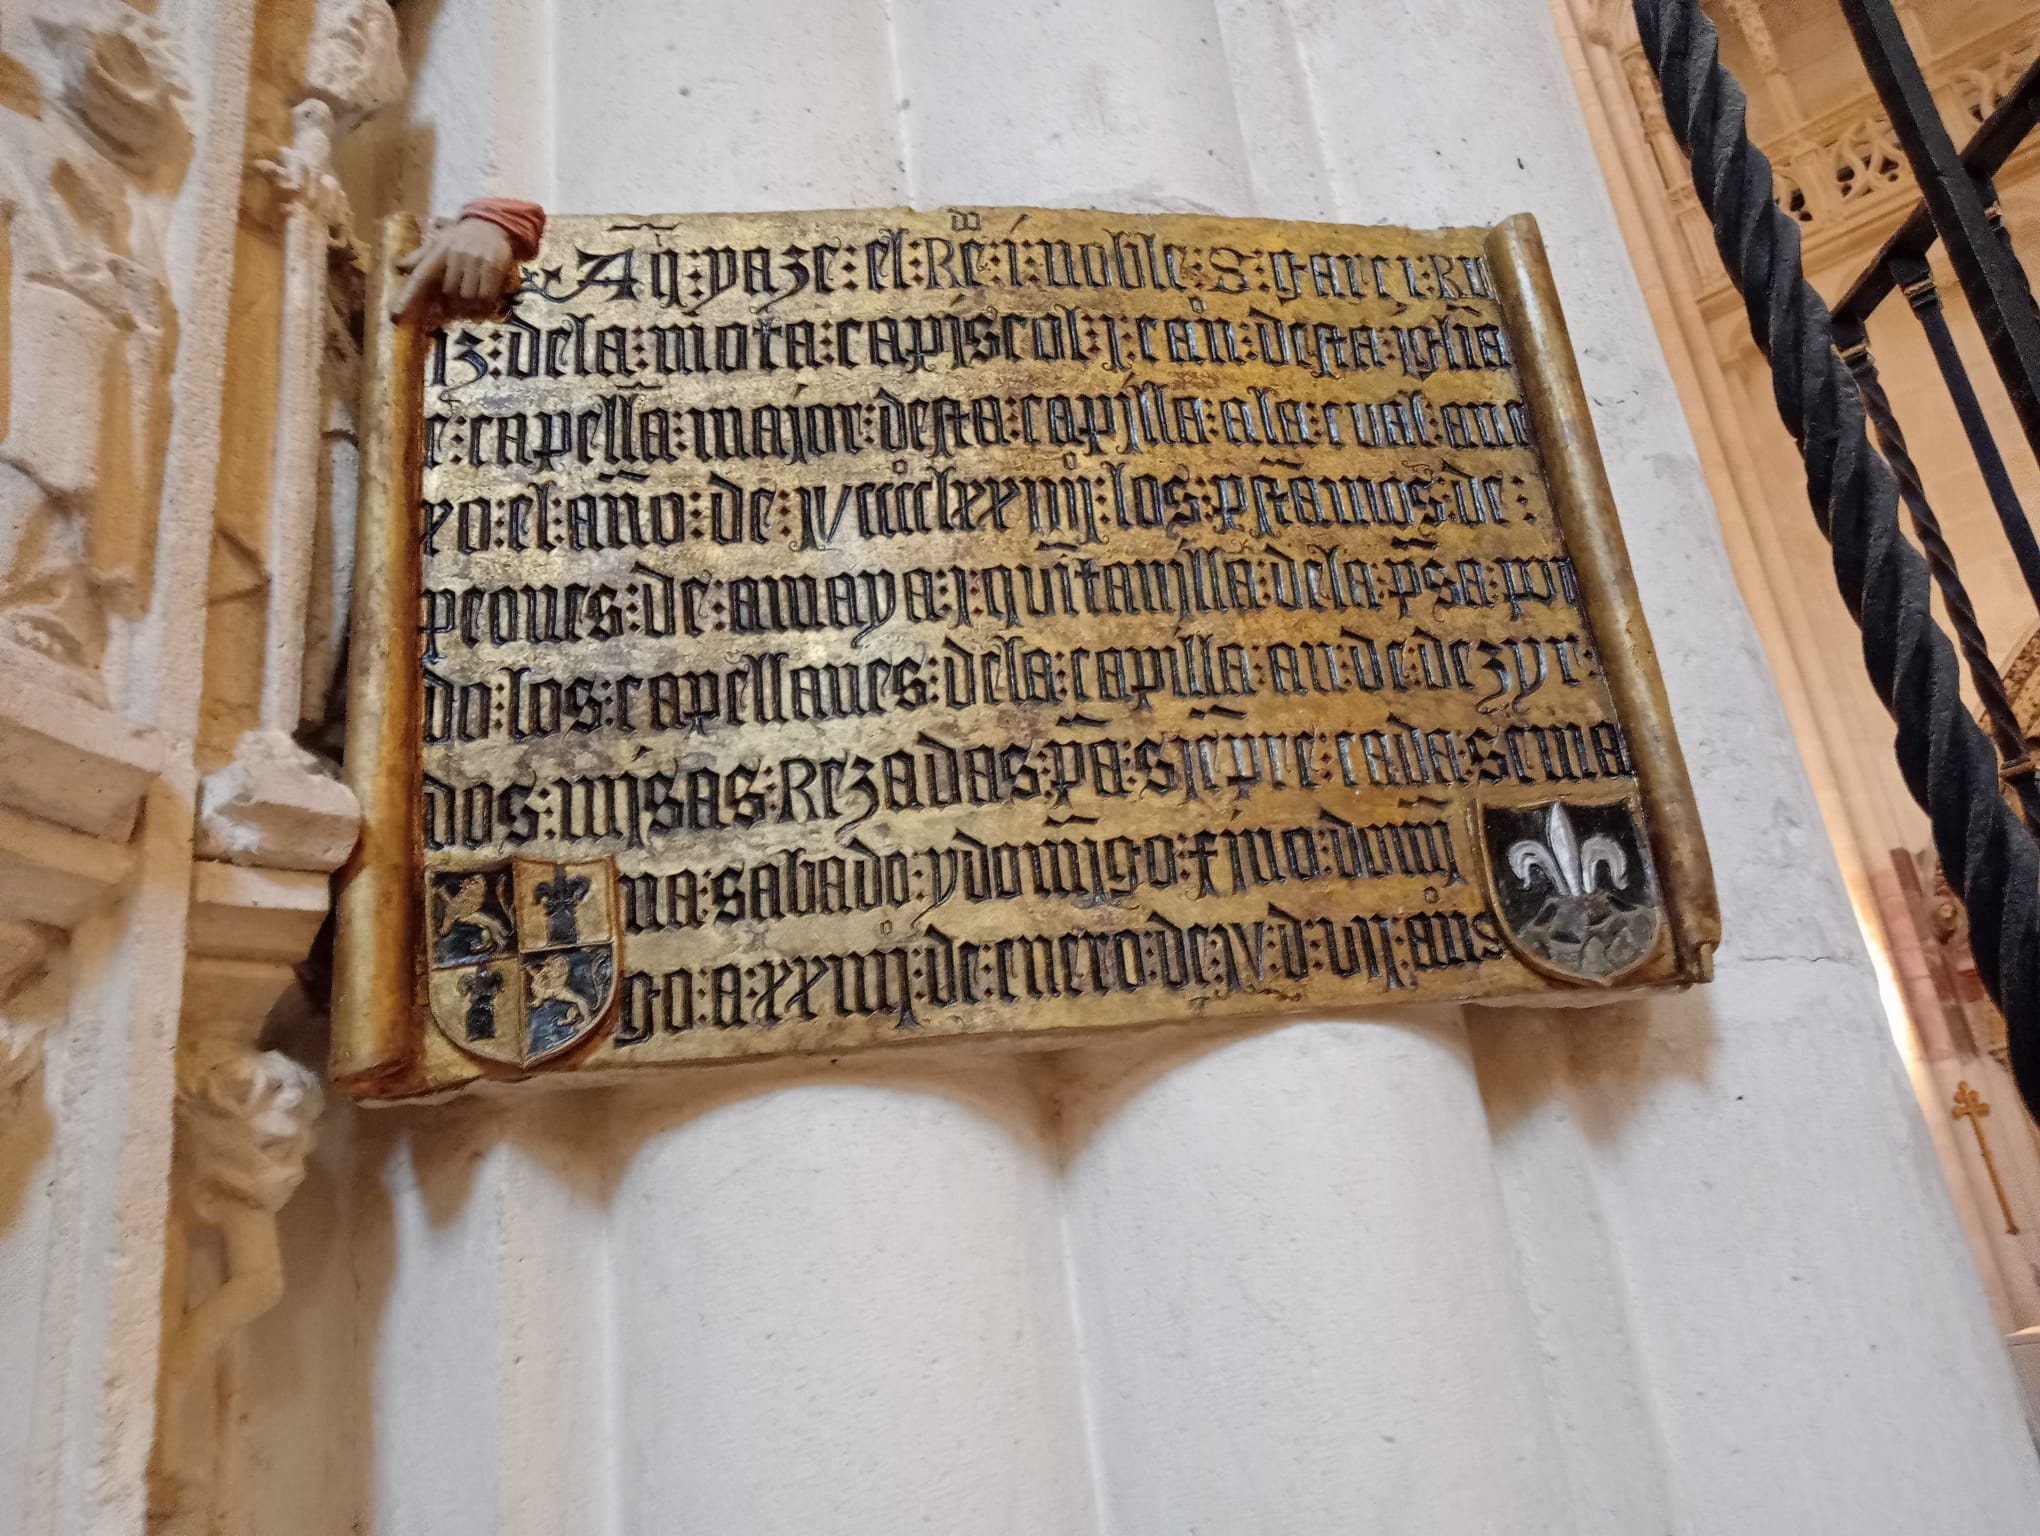 Aq̃:yaze:el:Redo:i:noble:S:garci:Ru
iz:dela:mota:capiscol:i:canº:desta:iglia
e:capellã:major:desta:capilla:ala:cual:ane
xo:el:año:de:iVccccºlxxiiijº:los:pstamos:de:
peones:de:amaya:i:quĩtanjlla:dela:p̃sa:por
do:los:capellanes:dela:capilla:an:de:dezyr:
dos:mjsas:Rezadas:pã:siẽpre:cada:sema
na:sabado:ydomĩgo:fino:domĩ
go:a:xxiiijº:de:enero:de:iV:d:vij:años